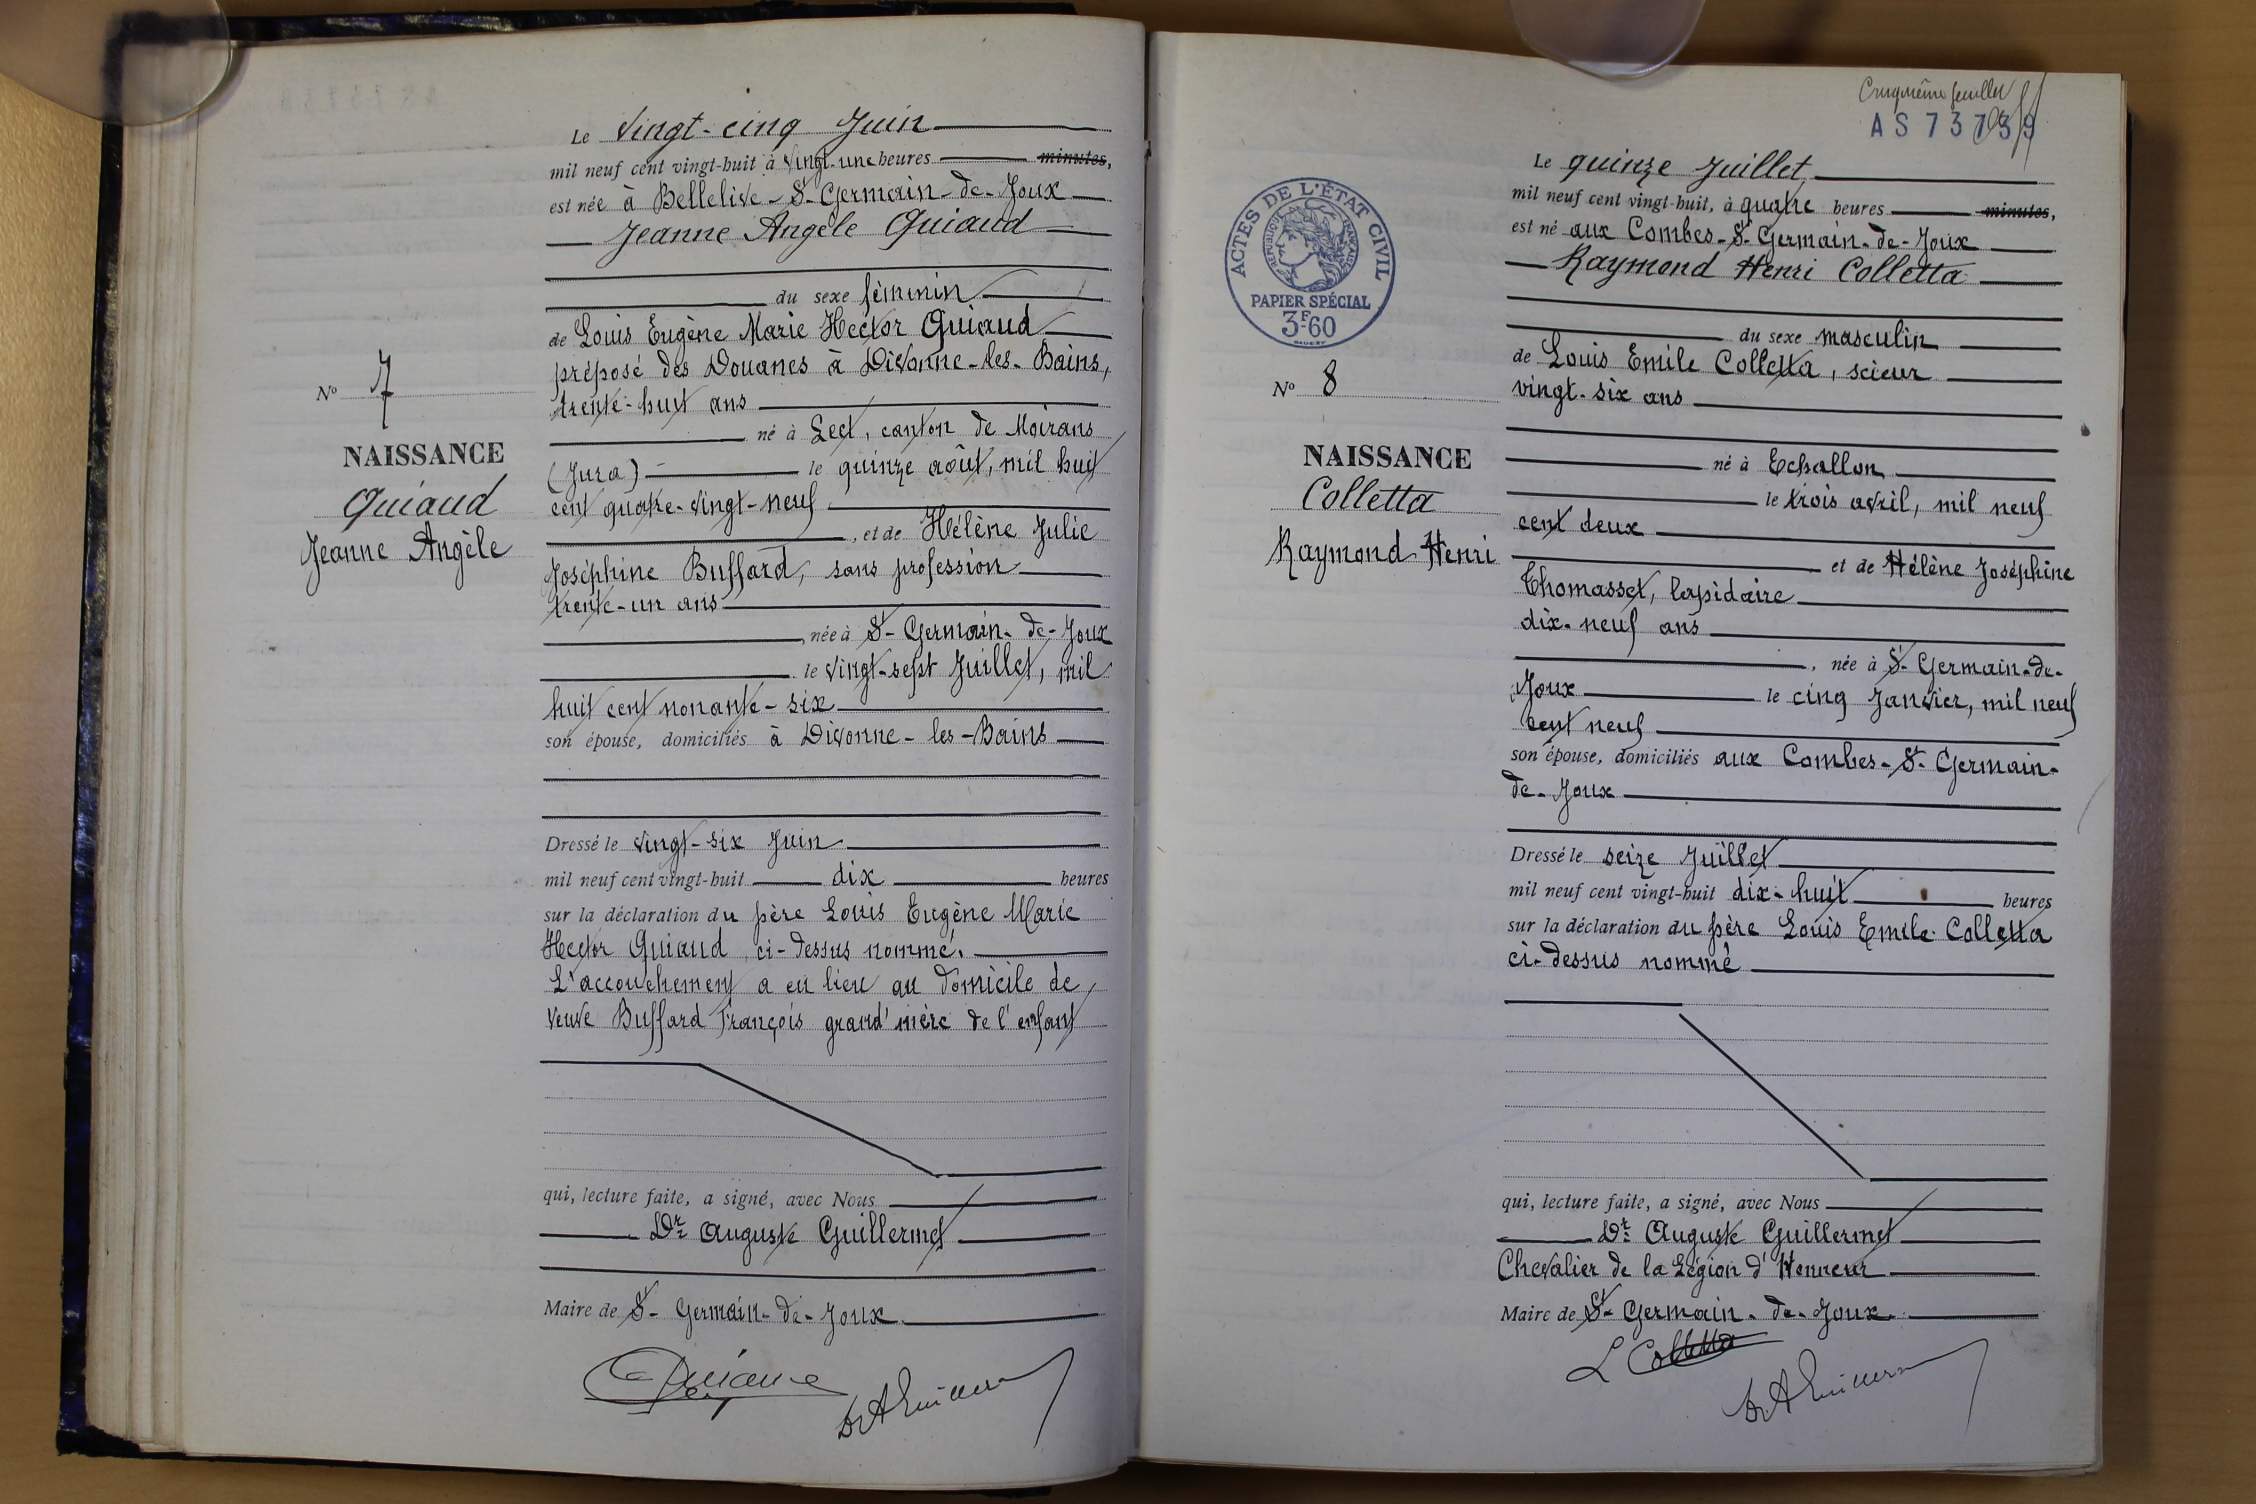 Le vingt-cinq Juin
mil neuf cent vingt-huit à vingt-une heures minutes,
est née à Bellelive-St-Germain-de-Joux
Jeanne Angèle Guiaud
du sexe féminin
de Louis Eugène Marie Hector Guiaud
préposé des Douanes à Divonne-les-Bains,
trente-huit ans
né à Lect, canton de Moirans
(Jura) le quinze août, mil huit
cent quatre-vingt-neuf
, et de Hélène Julie
Joséphine Buffard, sans profession
trente-un ans
, née à St-Germain-de-Joux
le vingt-sept Juillet, mil
huit cent nonante-six
son épouse, domiciliés à Divonne-les-Bains
Dressé le vingt-six Juin
mil neuf cent vingt-huit dix heures
sur la déclaration du père Louis Eugène Marie
Hector Guiaud, ci-dessus nommé.
L'accouchement a eu lieu au domicile de
veuve Buffard François grand'mère de l'enfant
qui, lecture faite, a signé, avec Nous
Dr Auguste Guillermet
Maire de St-Germain-de-Joux
No 7
NAISSANCE
Guiaud
Jeanne Angèle
Cinquième feuillet
AS 73739
ACTES DE L'ÉTAT CIVIL
RÉPUBLIQUE FRANÇAISE
PAPIER SPÉCIAL
3F60
No 8
NAISSANCE
Colletta
Raymond Henri
Le quinze Juillet
mil neuf cent vingt-huit, à quatre heures minutes,
est né aux Combes-St-Germain-de-Joux
Raymond Henri Colletta
du sexe masculin
de Louis Emile Colletta, scieur
vingt-six ans
né à Echallon
le trois avril, mil neuf
cent deux
et de Hélène Joséphine
Thomasset, lapidaire
dix-neuf ans
, née à St-Germain-de-
Joux le cinq Janvier, mil neuf
cent neuf
son épouse, domiciliés aux Combes-St-Germain-
de-Joux
Dressé le seize Juillet
mil neuf cent vingt-huit dix-huit heures
sur la déclaration du père Louis Emile Colletta
ci-dessus nommé
qui, lecture faite, a signé, avec Nous
Dr Auguste Guillermet
Chevalier de la Légion d'Honneur
Maire de St-Germain-de-Joux
L Colletta